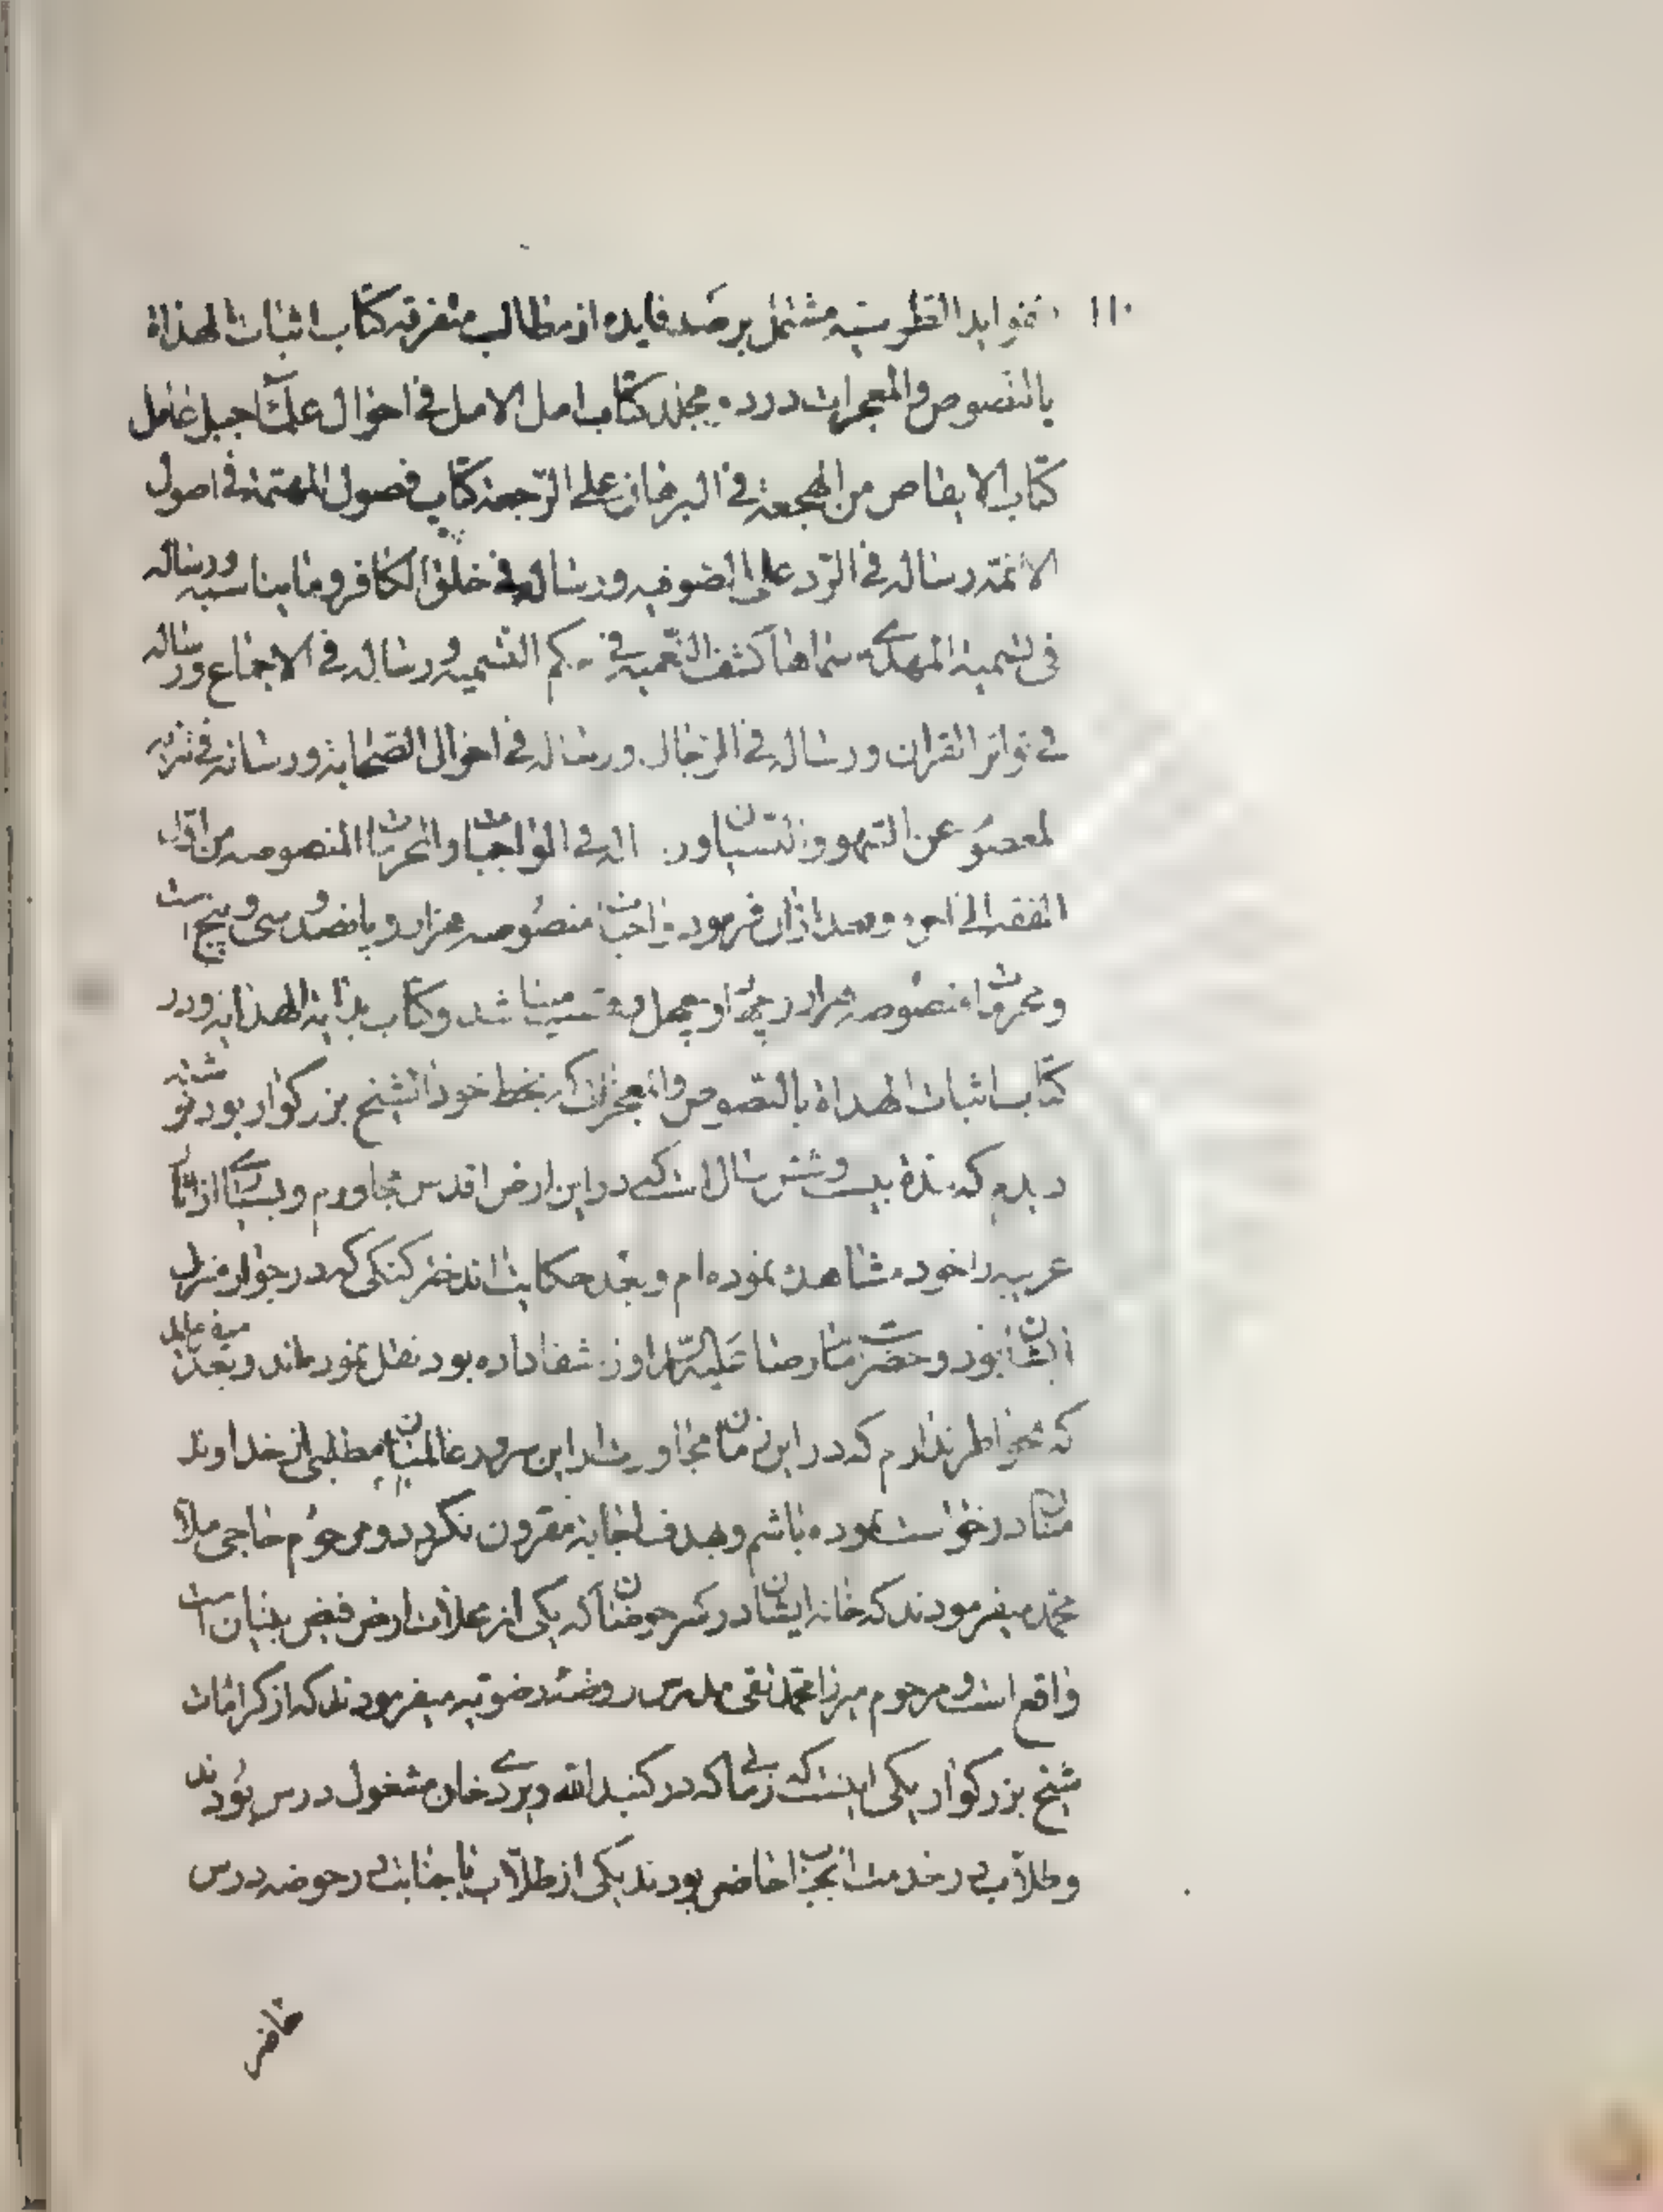 ۱۱۰
الفواید الطوسیه مشتمل بر صد فایده از مطالب متفرقه کتاب اثبات الهداة
بالنصوص والمعجزات در دو مجلد کتاب امل الامل فی احوال علماء جبل عامل
کتاب الایقاض من الهجعة فی البرهان علی الرجعة کتاب فصول المهمة فی اصول
الائمة رساله فی الرد علی الصوفیه ورساله فی خلق الکافر وما یناسبه ورساله
فی تسمیة المهدی سماها کشف التعمیه فی حکم التسمیه ورساله فی الاجماع ورساله
فی تواتر القران ورساله فی الرجال ورساله فی احوال الصحابة ورساله فی تنزیه
المعصوم عن السهو والنسیان ورساله فی الواجبات والمحرمات المنصوصه من اول
الفقه الی اخره وبعد از آن فرموده واجبات منصوصه هزار و پانصد و سی و پنج است
ومحرمات منصوصه هزار و چهارصد و چهل و میباشد وکتاب بدایة الهدایه ودر
کتاب اثبات الهداة بالنصوص والمعجزات که بخط خود آنشیخ بزرکوار بود نوشته
دیدم که بنده بیست وشش سال است که در این ارض اقدس مجاورم وبسیاری از آثار
غریبه را خود مشاهده نموده‌ام وبعد حکایت اندختر کنکی که در جوار منزل
ایشان بود وحضرت امام رضا علیه السلام او را شفا داده بود نقل نموده‌اند وبعد میفرمایند
که بخواطر ندارم که در این زمان مجاورت در این سرور عالمیان مطلبی از خداوند
منان درخواست نموده باشم وبهدف اجابة مقرون نکردد ومرحوم حاجی ملا
محمد میفرمودند که خانه ایشان در سرحوضان که یکی از محلات ارض فیض بنیان است
واقع است ومرحوم میرزا محمد تقی مدرس روضه رضویه میفرمودند که از کرامات
شیخ بزرکوار یکی اینست که زمانی که در کنبد الله ویردی خان مشغول درس بودند
وطلاب در خدمت آنجناب حاضر بودند یکی از طلاب با جنابت در حوضه درس
حاضر